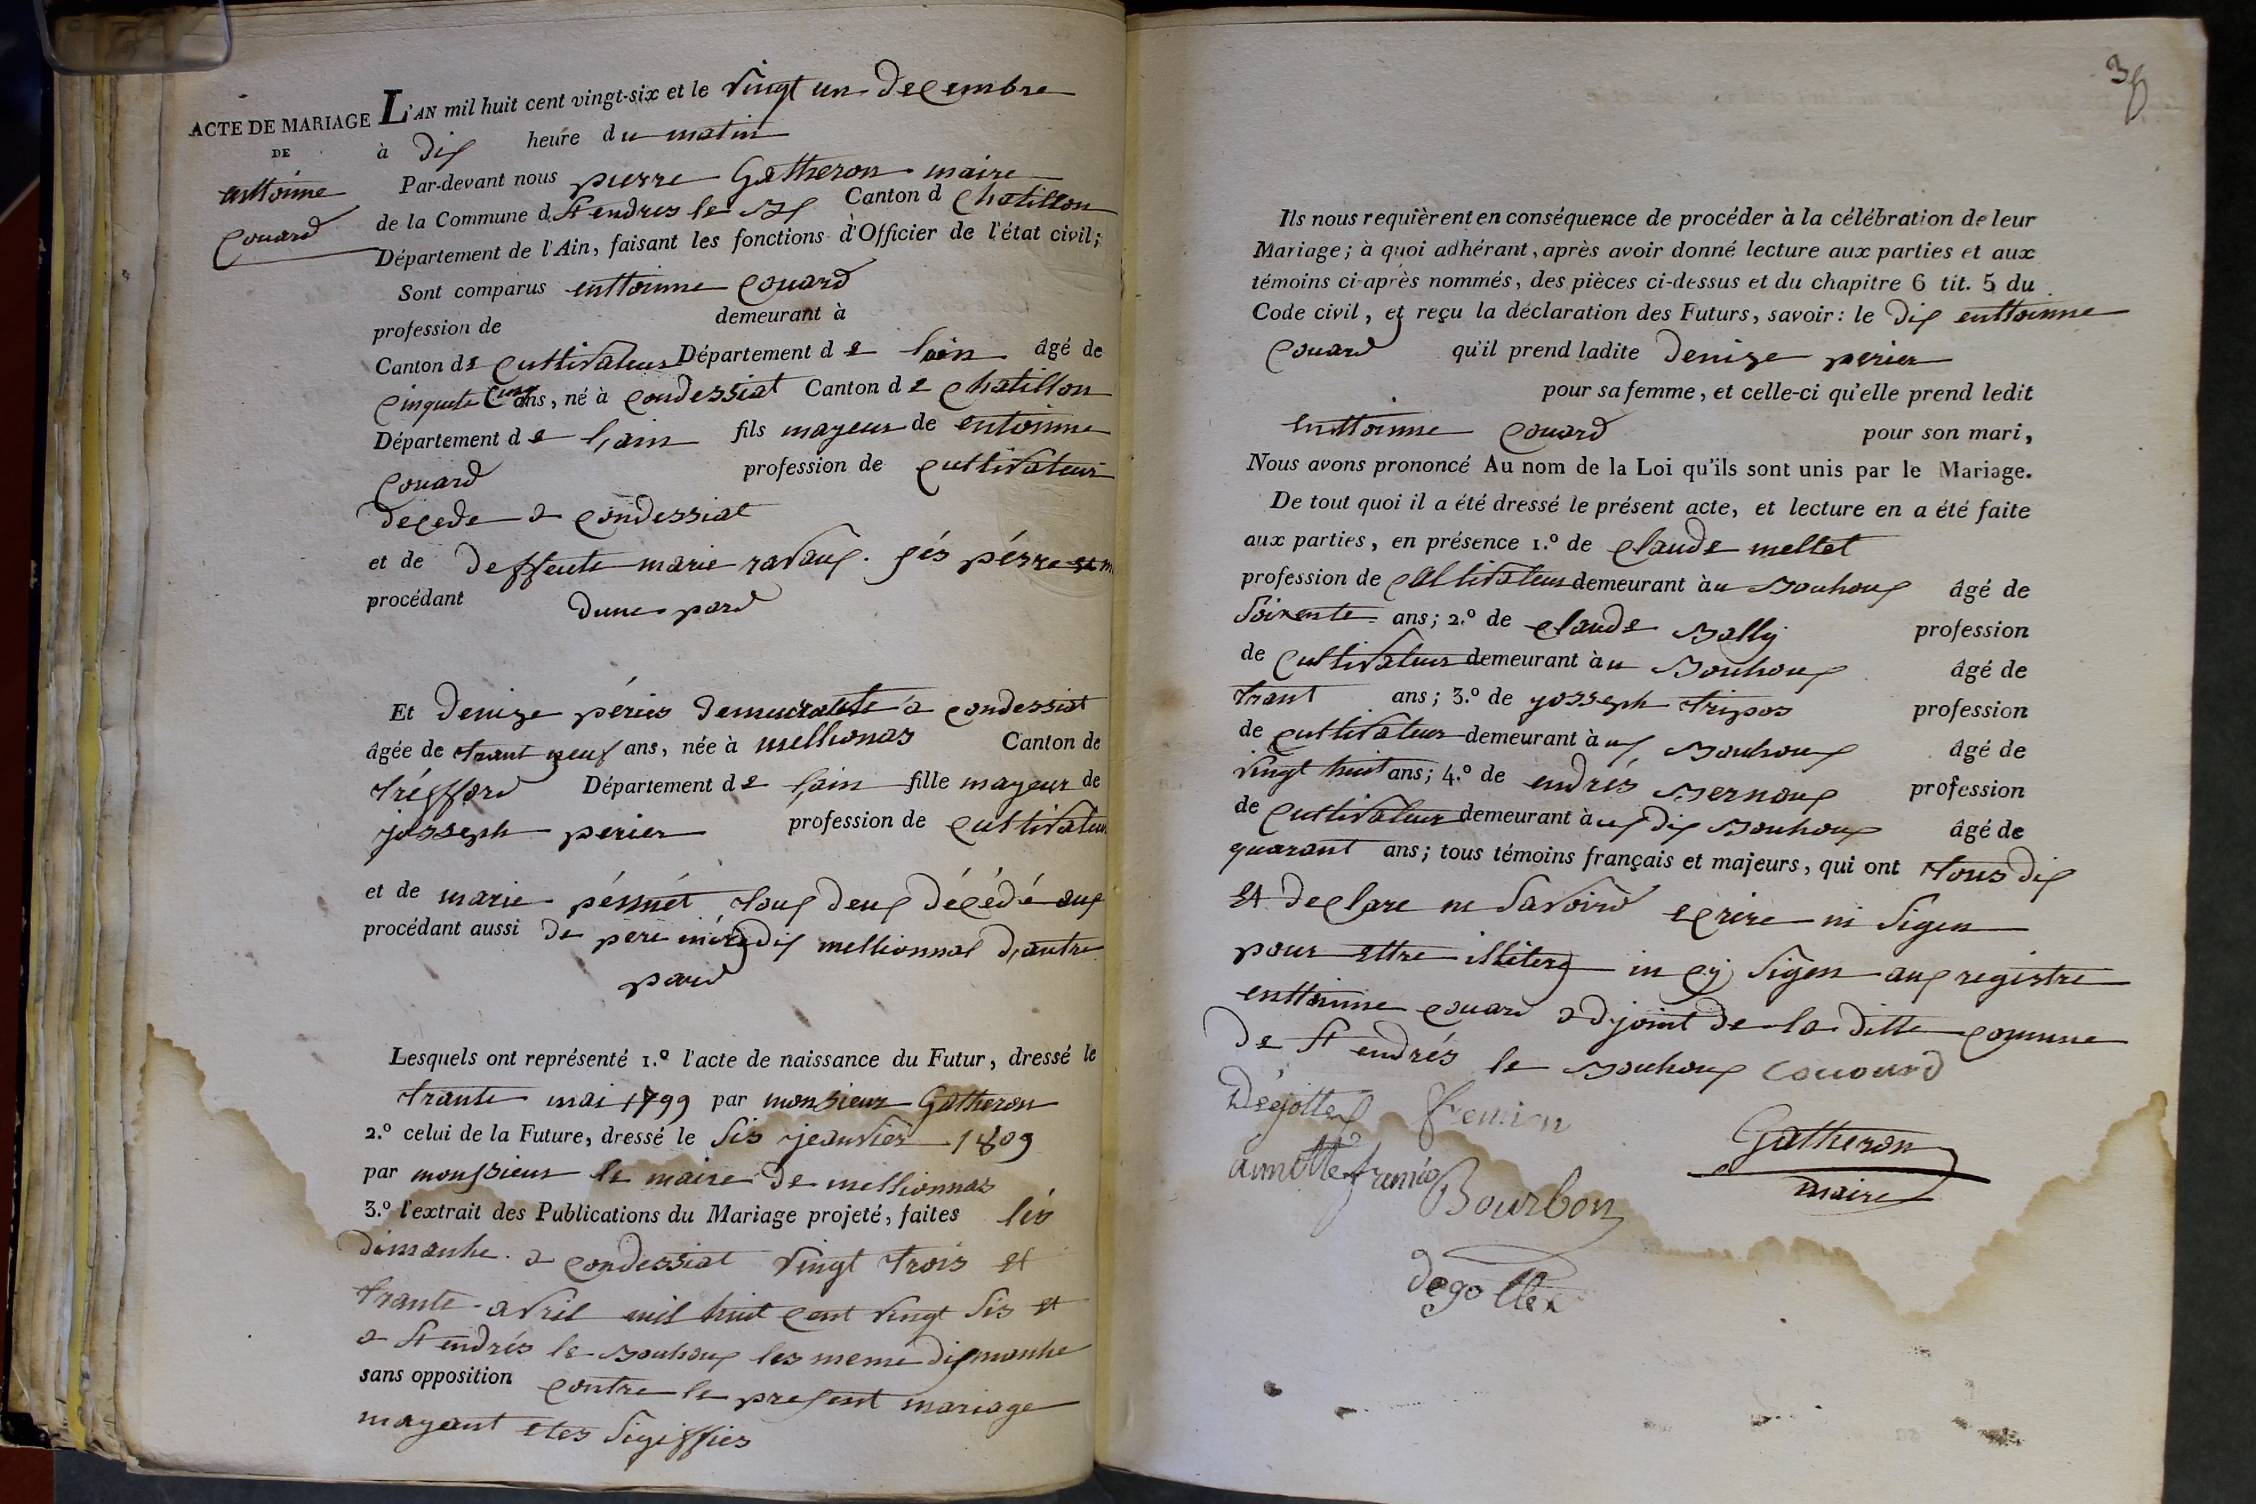 ACTE DE MARIAGE
DE
enttoinne
Couard
L'AN mil huit cent vingt-six et le vingt un decembre
à dix heure du matin
Par-devant nous pierre Gatheron maire
de la Commune d St endres le Canton d Chatillon
Département de l'Ain, faisant les fonctions d'Officier de l'état civil;
Sont comparus enttoinne Couard
profession de demeurant à
Canton de Cultivateur Département de lain âgé de
Cinquete Cinq ans, né à Condessiat Canton de Chatillon
Département de l,ain fils mayeur de entoinne
Couard profession de Cultivateur
decede a Condessiat
et de deffeute marie ravaux. sés pérre et m
procédant dune pard
Et denize périer demeurante a Condessiat
âgée de trant neuf ans, née à mellionas Canton de
tréfford Département de l,ain fille mayeur de
josseph perier profession de Cultivateur
et de marie tous deux décédé aux
procédant aussi de pere mére dix mellionnal d,autre
pard
Lesquels ont représenté 1.º l'acte de naissance du Futur, dressé le
trante mai 1799 par monsieur Gatheron
2.º celui de la Future, dressé le sis jeanvier 1809
par monsieur le maire de mellionnas
3.º l'extrait des Publications du Mariage projeté, faites lés
dimanhe a Condessiat vingt trois et
trante avril mil huit Cent vingt sis et
a St endrés le Bouhoux les meme dixmanhe
sans opposition Contre le present mariage
mayant etes sigiffies
38
Ils nous requièrent en conséquence de procéder à la célébration de leur
Mariage; à quoi adhérant, après avoir donné lecture aux parties et aux
témoins ci-après nommés, des pièces ci-dessus et du chapitre 6 tit. 5 du
Code civil, et reçu la déclaration des Futurs, savoir: le dix enttoinne
Couard qu'il prend ladite denize perier
pour sa femme, et celle-ci qu'elle prend ledit
enttoinne Couard pour son mari,
Nous avons prononcé Au nom de la Loi qu'ils sont unis par le Mariage.
De tout quoi il a été dressé le présent acte, et lecture en a été faite
aux parties, en présence 1.º de Claude mellet
profession de Cultivateur demeurant àu Bouhoux âgé de
soixente ans; 2.º de Claude Bally profession
de Cultivateur demeurant àu Bouhoux âgé de
trant ans; 3.º de yosseph tripos profession
de Cultivateur demeurant àux Bouhoux âgé de
vingt huit ans; 4.º de endrés Bernoux profession
de Cultivateur demeurant àux dix Bouhoux âgé de
quarant ans; tous témoins français et majeurs, qui ont tous dix
et declare ne savoird ecrire ni sigen
pour ettre illitere in Cy sigen aux registre
enttoinne Couard adjoint de la ditte Comune
de St endrés le Bouhoux Couourd
Dégottex
Gatheron
maire
Bourbon
degottex